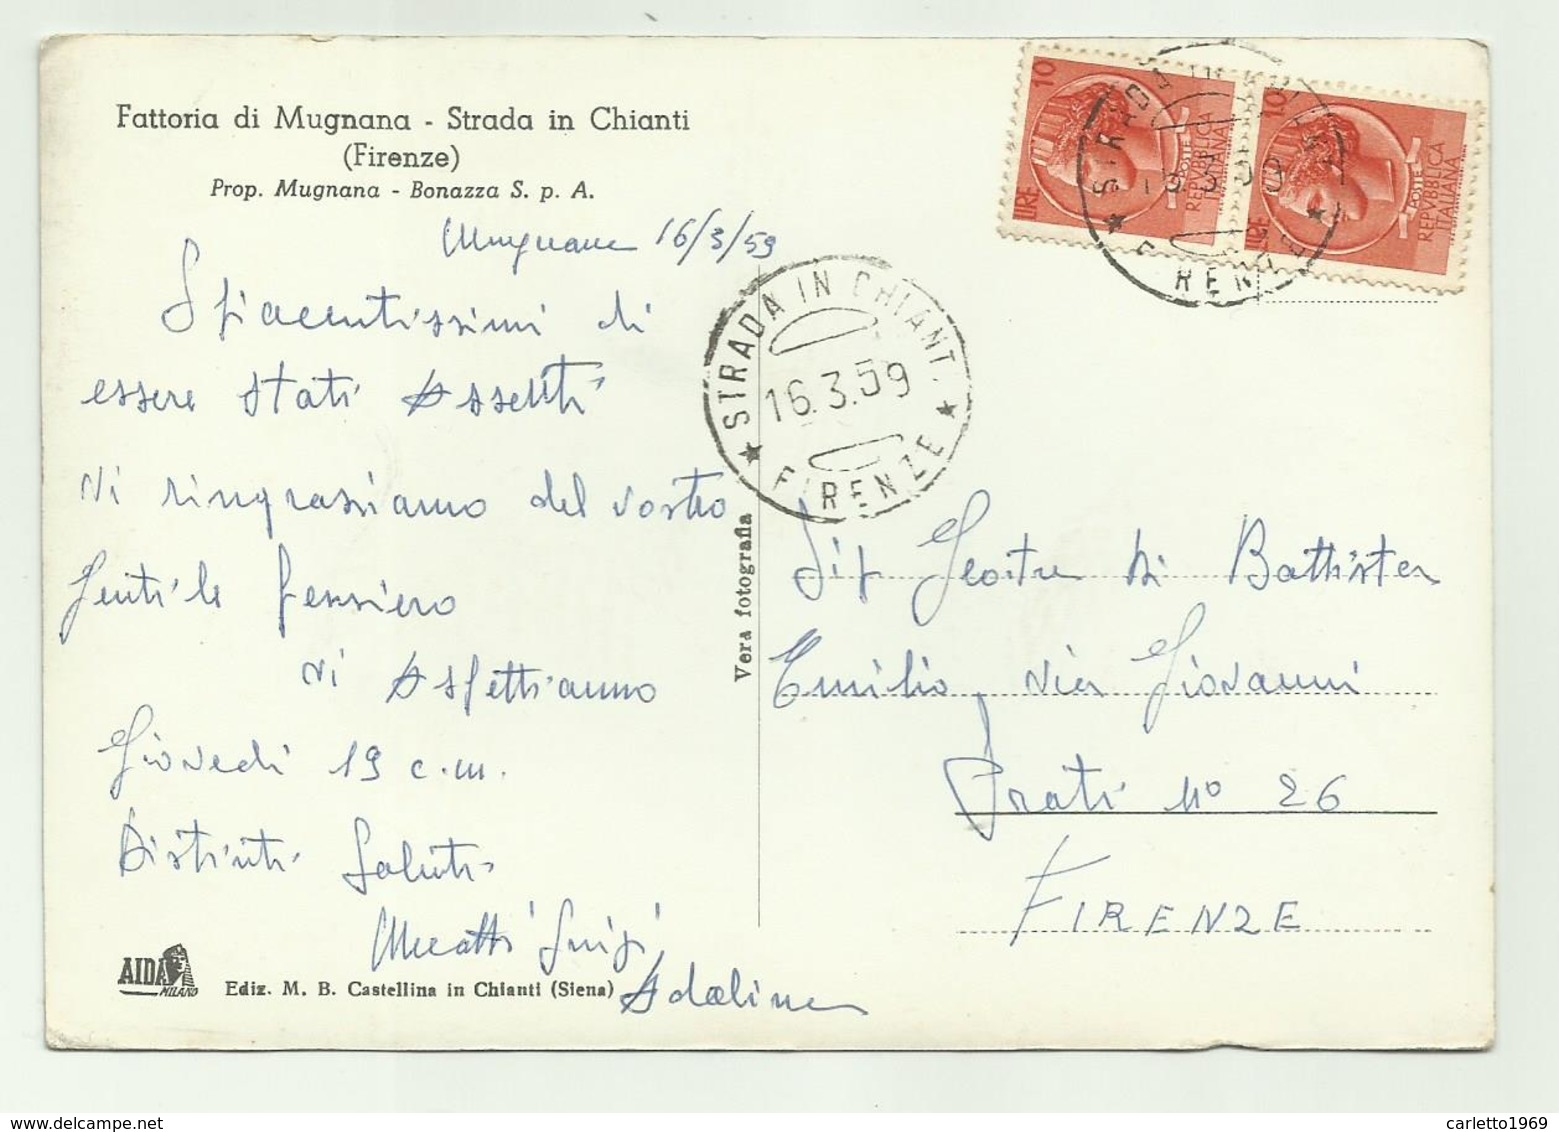 Fattoria di Mugnana - Strada in Chianti
(Firenze)
Prop. Mugnana - Bonazza S. p. A.
Mugnana 16/3/59
Spiacentissimi di
essere stati Assenti
vi ringraziamo del vostro
gentile pensiero
vi Aspettiamo
Giovedi 19 c.m.
Distinti Saluti
Micatti Luigi
Adalina
AIDA
MILANO
Ediz. M. B. Castellina in Chianti (Siena)
Vera fotografia
STRADA IN CHIANTI
16.3.59
FIRENZE
10
LIRE
POSTE
REPVBBLICA
ITALIANA
10
LIRE
POSTE
REPVBBLICA
ITALIANA
Sig Di Battista
Emilio via Giovanni
Prati n° 26
FIRENZE
carletto1969